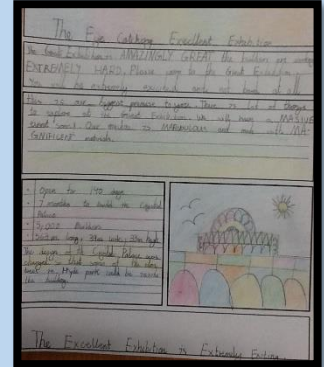 The Eye Catching Excellent Exhibition
The Great Exhibition is AMAZINGLY GREAT. The builders are working
EXTREMELY HARD. Please come to the Great Exhibition.
You will be extremely excited and not bored at all
This is our biggest promise to you. There is lot of things
to explore at the Great Exhibition. We will have a MASSIVE
Our exhibition is MARVELLOUS and made with MA-
GNIFICENT materials.
• Open for 140 days
• 7 months to build the Crystal
Palace
• 5,000 Builders
The design of the Crystal Palace was
changed so that some of the elm
trees in Hyde park could be inside
the building.
The Excellent Exhibition is Extremely Exciting